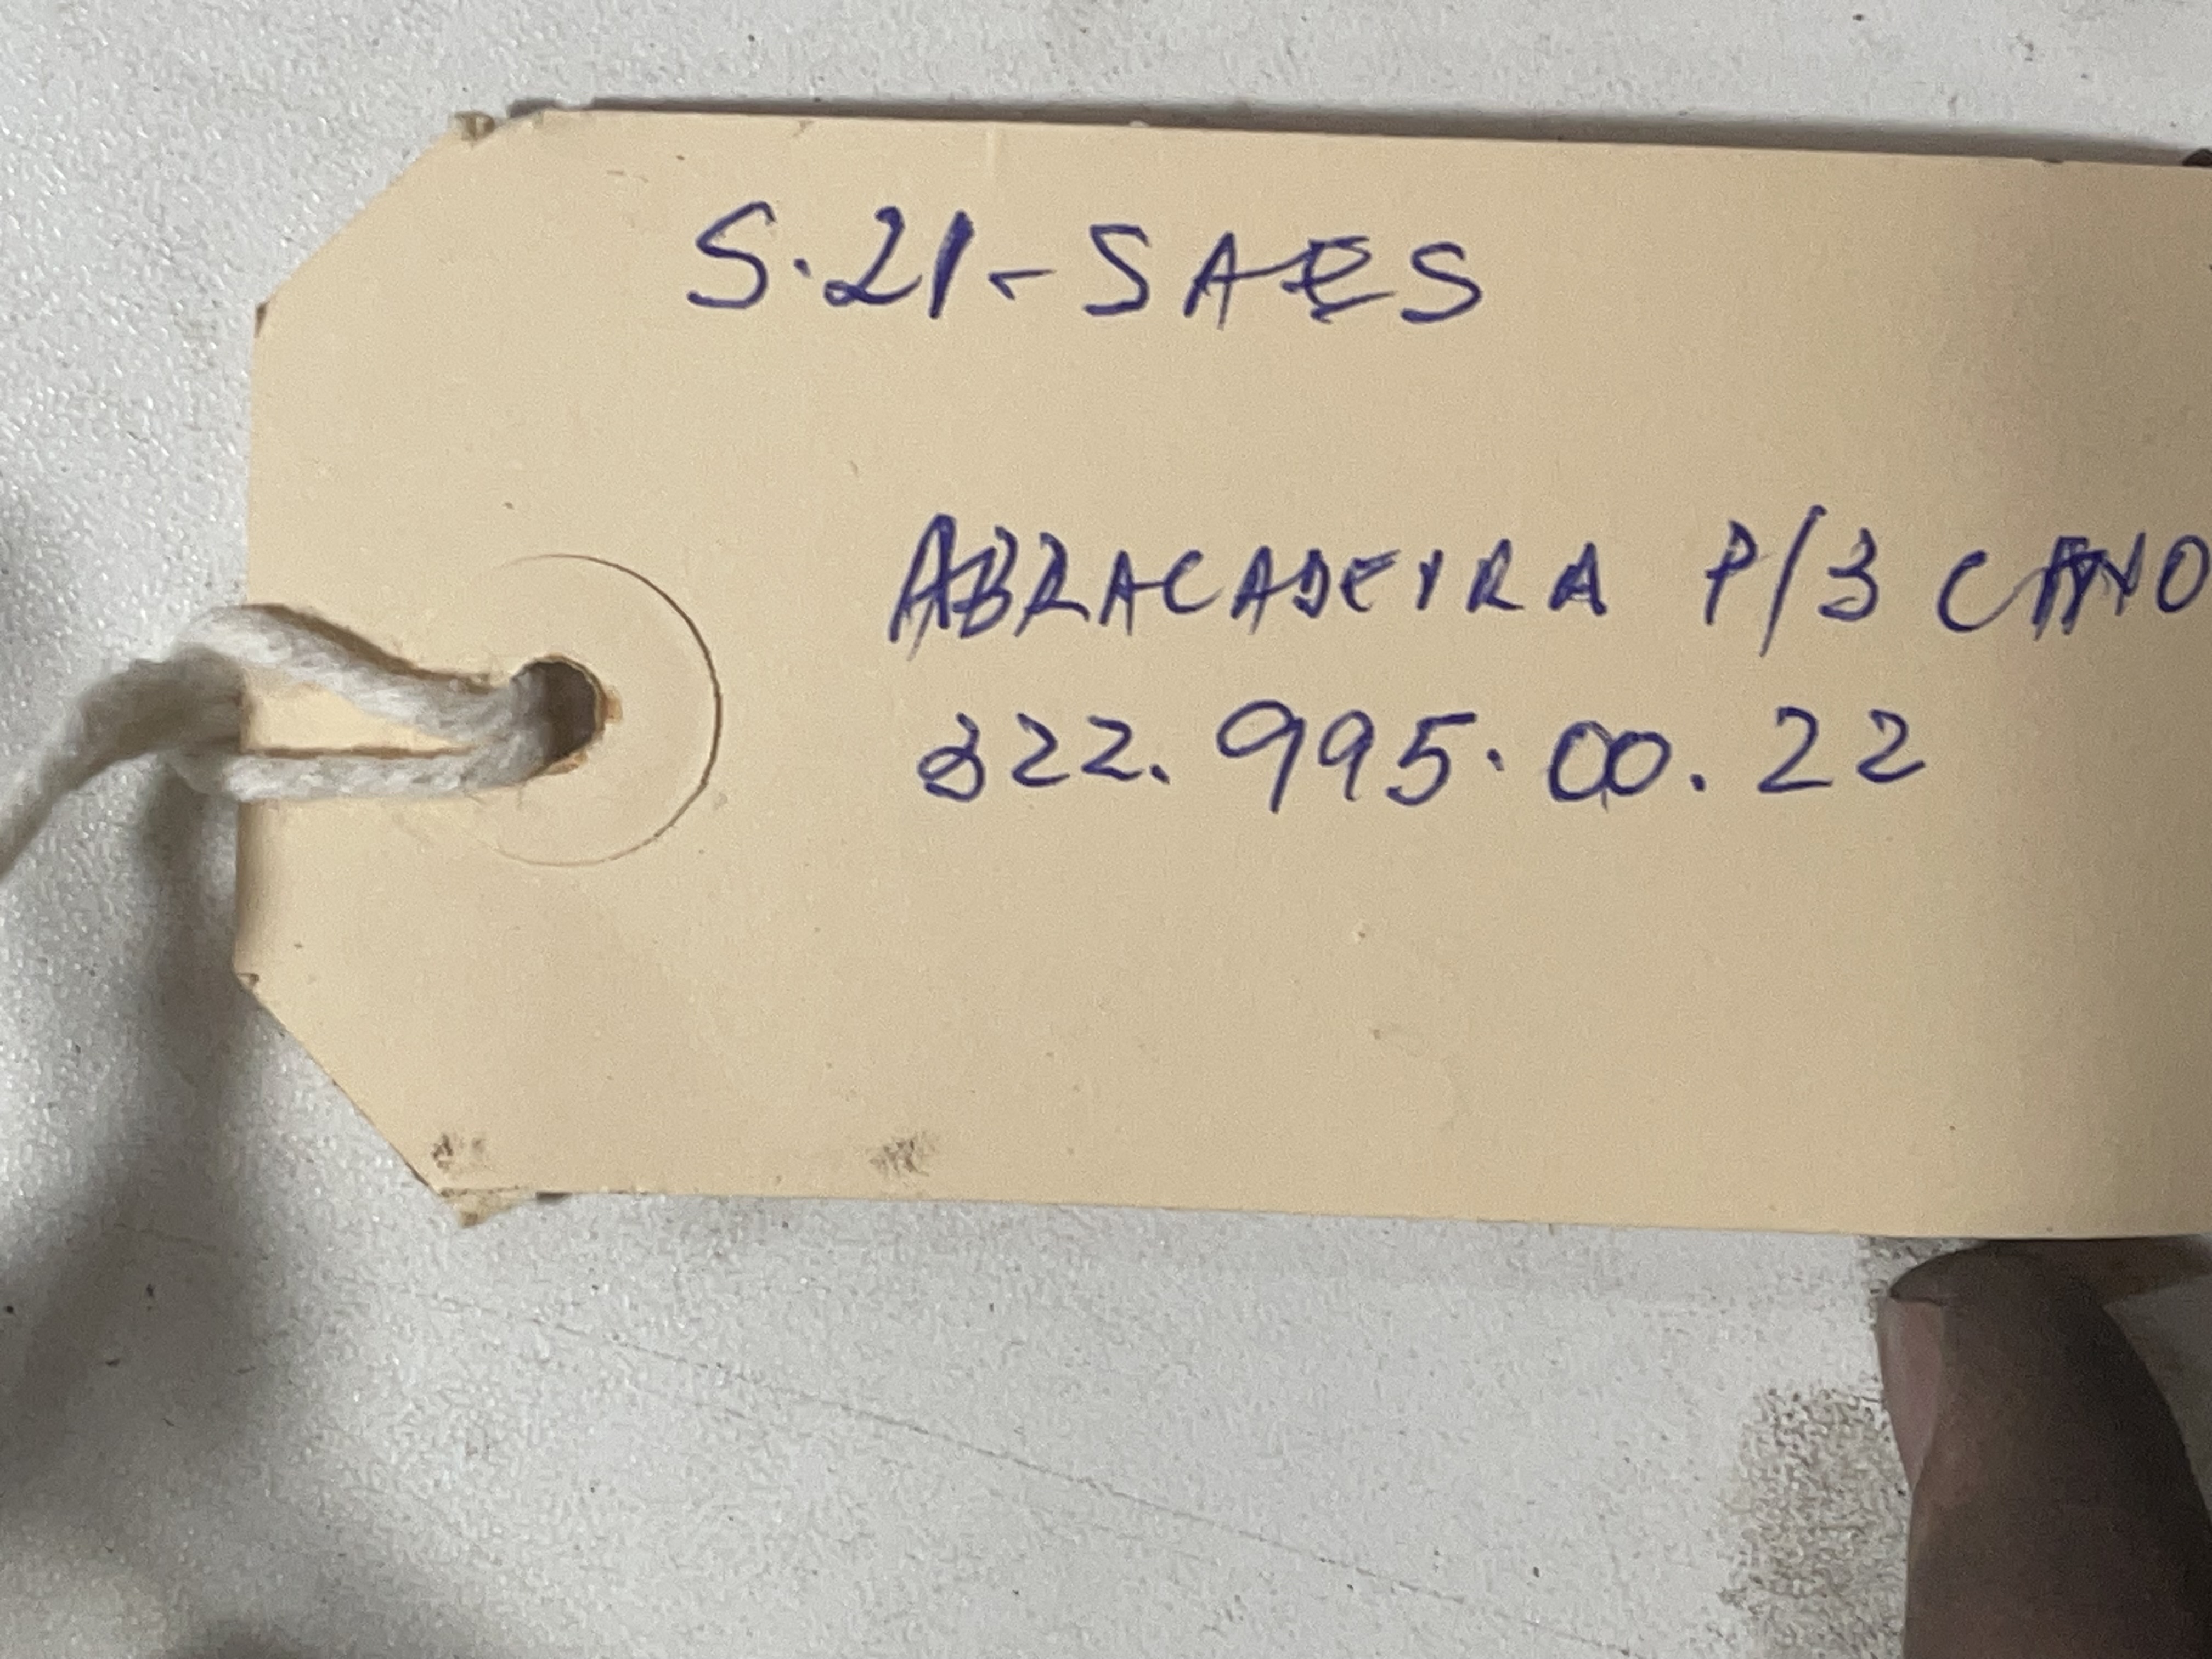 S.21-SAES
ABRACADEIRA P/3 CANO
822.995.00.22